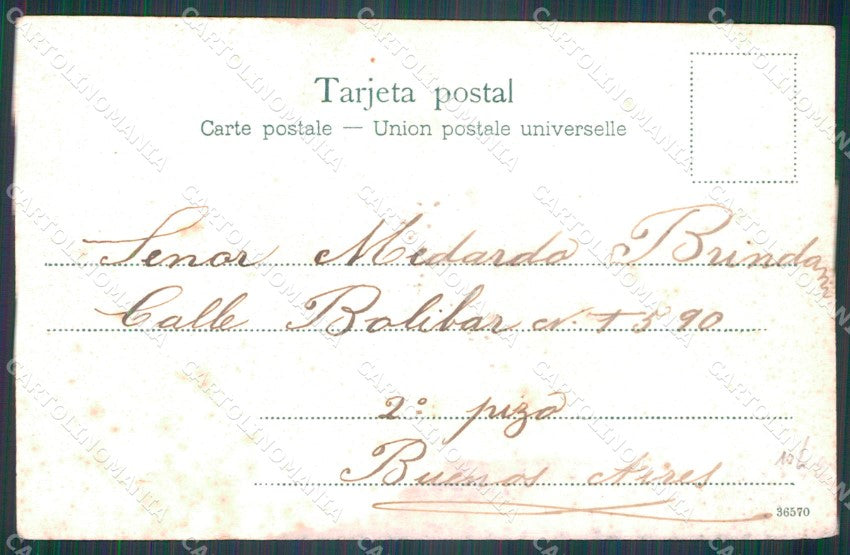 Tarjeta postal
Carte postale — Union postale universelle
Senor Medardo Brindani
Calle Bolibar N. 1590
2º pizo
Buenos Aires
106
36570
CARTOLINOMANIA